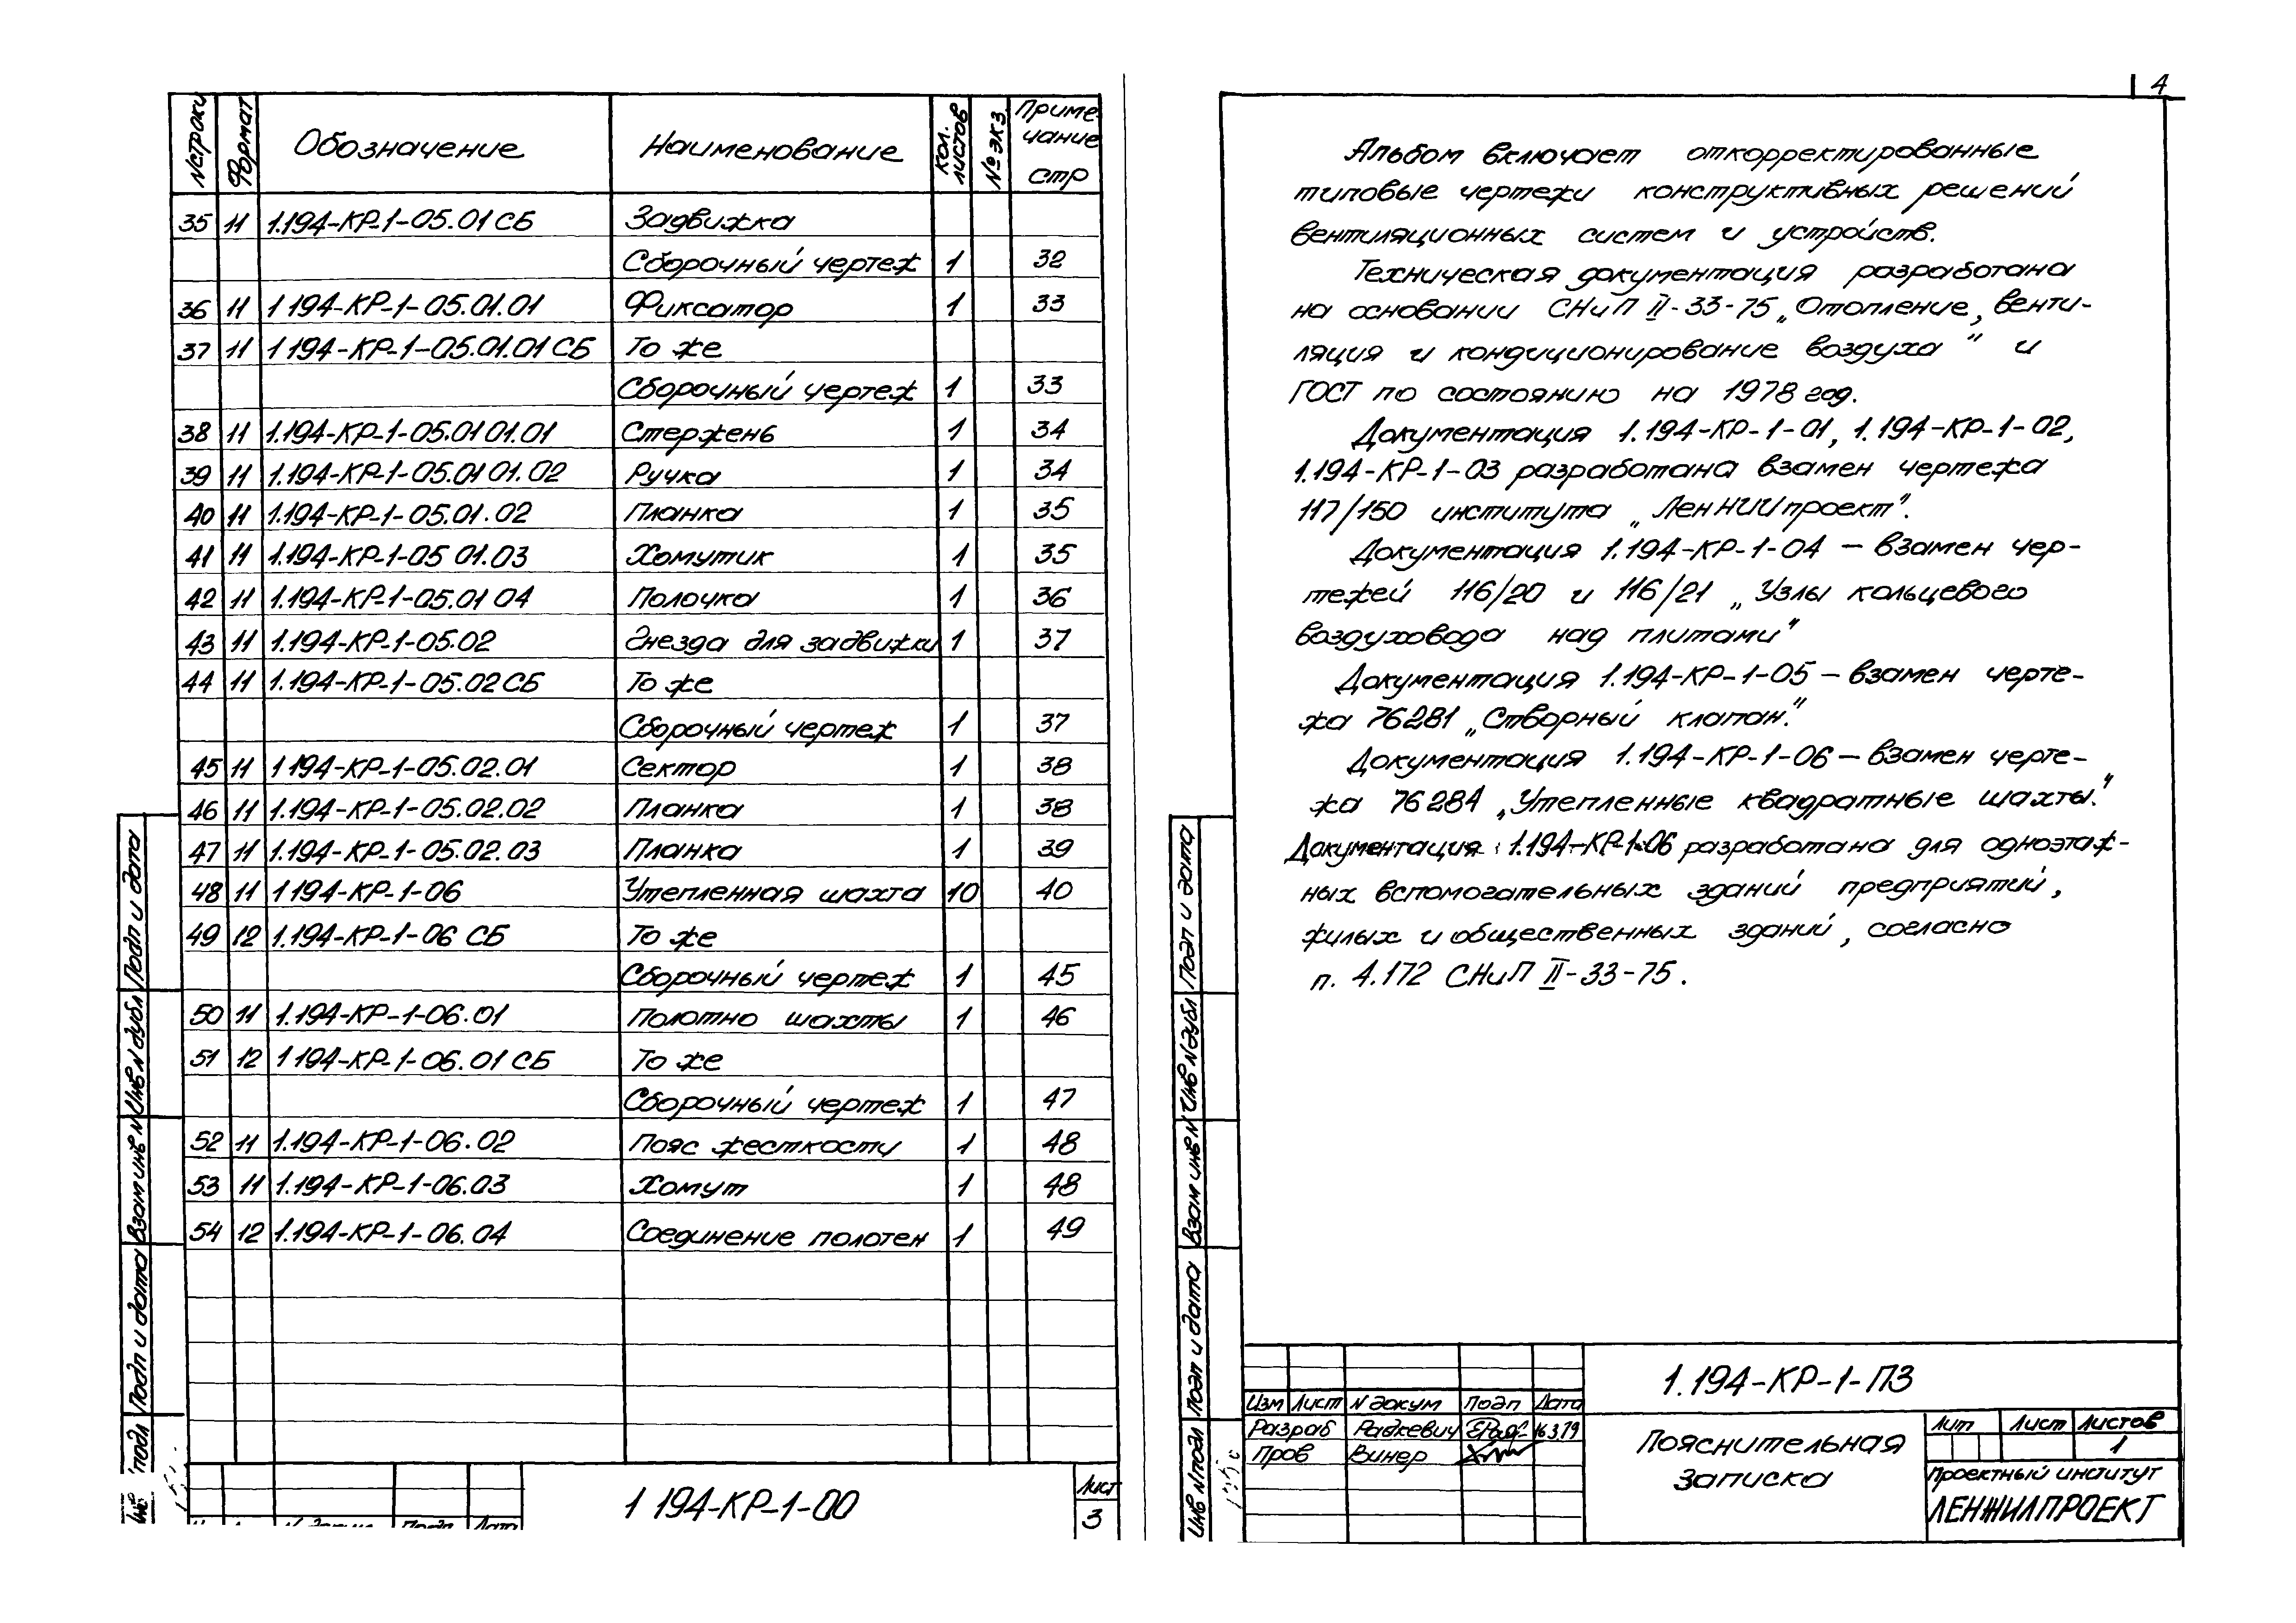 №строки Формат Обозначение Наименование Кол. листов № экз. Приме-чание стр
35 11 1.194-КР-1-05.01 СБ Задвижка
Сборочный чертеж 1 32
36 11 1 194-КР-1-05.01.01 Фиксатор 1 33
37 11 1 194-КР-1-05.01.01 СБ То же
Сборочный чертеж 1 33
38 11 1.194-КР-1-05.01 01.01 Стержень 1 34
39 11 1.194-КР-1-05.01 01.02 Ручка 1 34
40 11 1.194-КР-1-05.01.02 Планка 1 35
41 11 1.194-КР-1-05 01.03 Хомутик 1 35
42 11 1.194-КР-1-05.01 04 Полочка 1 36
43 11 1.194-КР-1-05.02 Гнезда для задвижки 1 37
44 11 1.194-КР-1-05.02 СБ То же
Сборочный чертеж 1 37
45 11 1 194-КР-1-05.02.01 Сектор 1 38
46 11 1.194-КР-1-05.02.02 Планка 1 38
47 11 1.194-КР-1-05.02.03 Планка 1 39
48 11 1 194-КР-1-06 Утепленная шахта 10 40
49 12 1.194-КР-1-06 СБ То же
Сборочный чертеж 1 45
50 11 1.194-КР-1-06.01 Полотно шахты 1 46
51 12 1 194-КР-1-06.01 СБ То же
Сборочный чертеж 1 47
52 11 1.194-КР-1-06.02 Пояс жесткости 1 48
53 11 1.194-КР-1-06.03 Хомут 1 48
54 12 1.194-КР-1-06.04 Соединение полотен 1 49
Подп и дата
Инв N дубл
Взам инв N
Подп и дата
Инв. подл
1 194-КР-1-00
Лист
3
4
Альбом включает откорректированные
типовые чертежи конструктивных решений
вентиляционных систем и устройств.
Техническая документация разработана
на основании СНиП II-33-75 „Отопление, венти-
ляция и кондиционирование воздуха" и
ГОСТ по состоянию на 1978 год.
Документация 1.194-КР-1-01, 1.194-КР-1-02,
1.194-КР-1-03 разработана взамен чертежа
117/150 института „ЛенНИИпроект".
Документация 1.194-КР-1-04 – взамен чер-
тежей 116/20 и 116/21 „Узлы кольцевого
воздуховода над плитами"
Документация 1.194-КР-1-05 – взамен черте-
жа 76281 „Створный клапан."
Документация 1.194-КР-1-06 – взамен черте-
жа 76284 „Утепленные квадратные шахты."
Документация 1.194-КР-1-06 разработана для одноэтаж-
ных вспомогательных зданий предприятий,
жилых и общественных зданий, согласно
п. 4.172 СНиП II-33-75.
Подп и дата
Инв N дубл
Взам инв N
Подп и дата
Инв N подл
1.194-КР-1-ПЗ
Изм Лист N докум Подп Дата
Разраб Радкевич 16.3.79
Пров Винер
Пояснительная
записка
Лит Лист Листов
1
Проектный институт
ЛЕНЖИЛПРОЕКТ